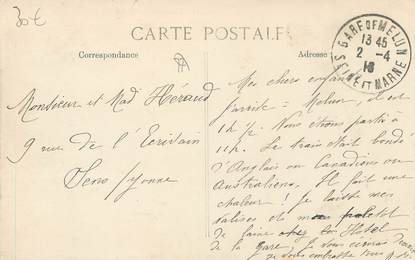 30€
CARTE POSTALE
Correspondance
Adresse
GARE OF MELUN
13 45
2 - 4
18
SEINE ET MARNE
Monsieur et Mad Héraud
9 rue de l'Ecrivain
Sens /Yonne
Mes chers enfants
J'arrive à Melun, il est
1h ½. Nous étions parti à
11h. Le train était bondé
d'Anglais ou Canadiens ou
Australiens. Il fait une
chaleur ! Je laisse mes
valises et
de laine Hotel
de la gare, Je vous
vous embrasse